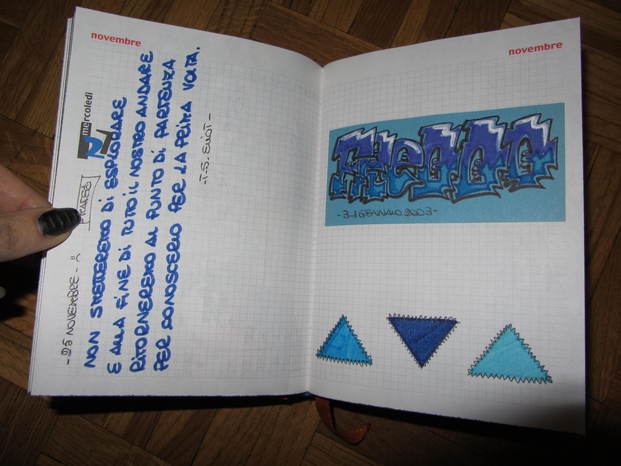 novembre
mercoledì
- 25 NOVEMBRE -
NON SMETTEREMO DI ESPLORARE
E ALLA FINE DI TUTTO IL NOSTRO ANDARE
RITORNEREMO AL PUNTO DI PARTENZA
PER CONOSCERLO PER LA PRIMA VOLTA.
-T. S. ELIOT-
novembre
- 3 GENNAIO 2003 -